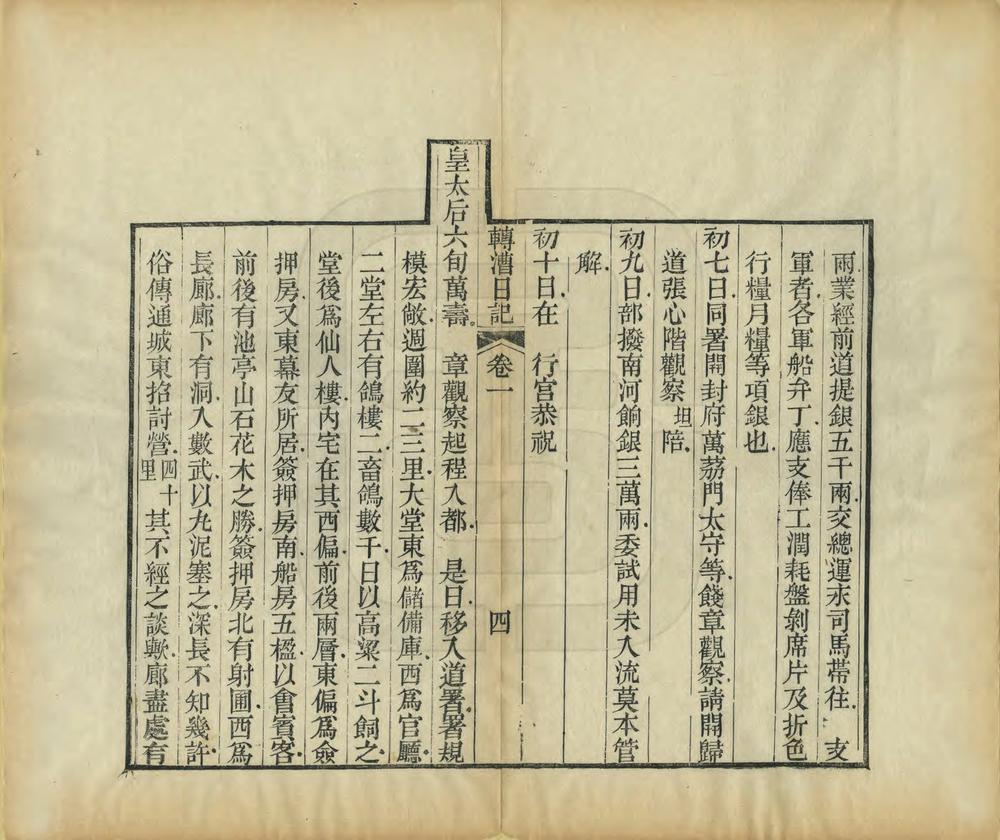 兩業經前道提銀五千兩交總運永司馬帶往　支
軍者各軍船弁丁應支俸工潤耗盤剝席片及折色
行糧月糧等項銀也
初七日同署開封府萬荔門太守等餞章觀察請開歸
道張心階觀察坦陪
初九日部撥南河餉銀三萬兩委試用未入流莫本管
解
初十日在　行宮恭祝
轉漕日記　卷一　四
皇太后六旬萬壽　章觀察起程入都　是日移入道署署規
模宏敞週圍約二三里大堂東爲儲備庫西爲官廳
二堂左右有鴿樓二畜鴿數千日以高粱二斗飼之
堂後爲仙人樓內宅在其西偏前後兩層東偏爲僉
押房又東幕友所居簽押房南船房五楹以會賓客
前後有池亭山石花木之勝簽押房北有射圃西爲
長廊廊下有洞入數武以丸泥塞之深長不知幾許
俗傳通城東掐討營四十里其不經之談歟廊盡處有